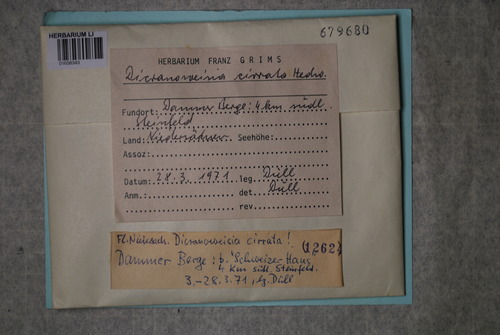 HERBARIUM LI
679680
HERBARIUM FRANZ GRIMS
Dicranoweisia cirrata Hedw.
Fundort: Dammer Berge: 4 km südl.
Steinfeld
Land: Niedersachsen Seehöhe:
Assoz:
Datum: 28.3.1971 leg. Düll
Anm.: det. Düll
rev.
Dicranoweisia cirrata! (1262)
Dammer Berge: b. Schweizer Haus
4 km südl. Steinfeld.
3.-28.3.71, lg. Düll